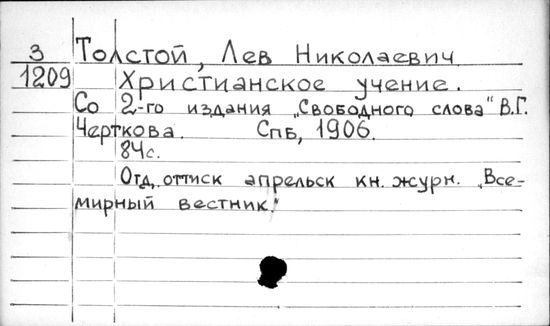 З Толстой, Лев Николаевич
1209 Христианское учение.
Со 2-го издания „Свободного слова" В.Г.
Черткова. Спб, 1906.
84с.
Отд. оттиск апрельск кн. журн. „Все-
мирный вестник."